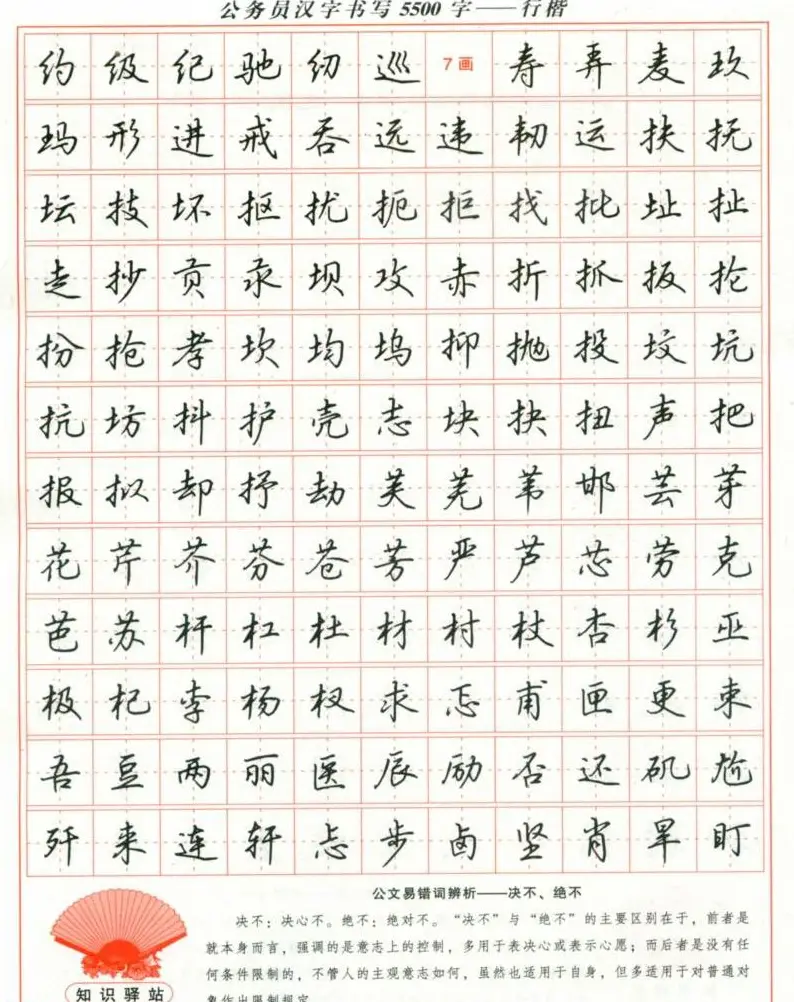 公务员汉字书写5500字——行楷
约级纪驰纫巡7画寿弄麦玖
玛形进戒吞远违韧运扶抚
坛技坏抠扰扼拒找批址扯
走抄贡汞坝攻赤折抓扳抡
扮抢孝坎均坞抑抛投坟坑
抗坊抖护壳志块抉扭声把
报拟却抒劫芙芜苇邯芸芽
花芹芥芬苍芳严芦芯劳克
芭苏杆杠杜材村杖杏杉巫
极杞李杨杈求忑甫匣更束
吾豆两丽医辰励否还矶尬
歼来连轩忐步卤坚肖旱盯
公文易错词辨析——决不、绝不
决不：决心不。绝不：绝对不。“决不”与“绝不”的主要区别在于，前者是
就本身而言，强调的是意志上的控制，多用于表决心或表示心愿；而后者是没有任
何条件限制的，不管人的主观意志如何，虽然也适用于自身，但多适用于对普通对
象作出限制规定
知识驿站